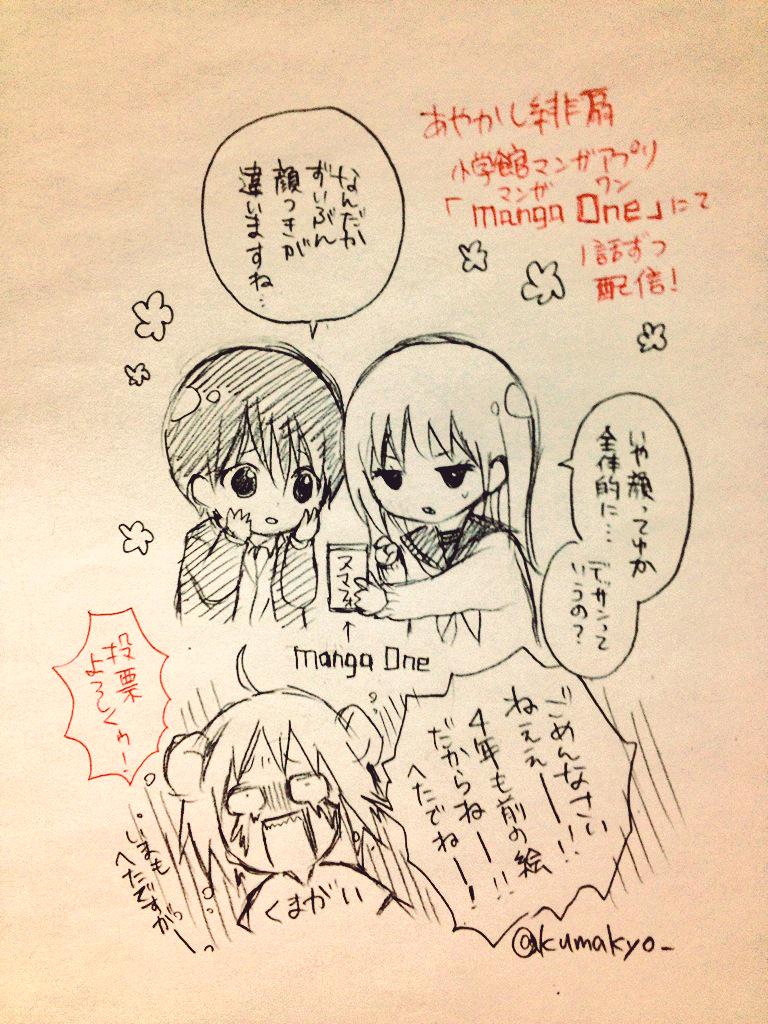 あやかし緋扇
小学館マンガアプリ
マンガ ワン
「manga One」にて
1話ずつ
配信!
なんだか
ずいぶん
顔つきが
違いますね…
いや顔ってゆか
全体的に…
デッサンって
いうの?
スマフォ
↑
manga One
投票
よろしくゥー!
ごめんなさい
ねぇぇー!!
4年も前の絵
だからねー!!
へたでねー!
いまも
へたですがっー
くまがい
@kumakyo_